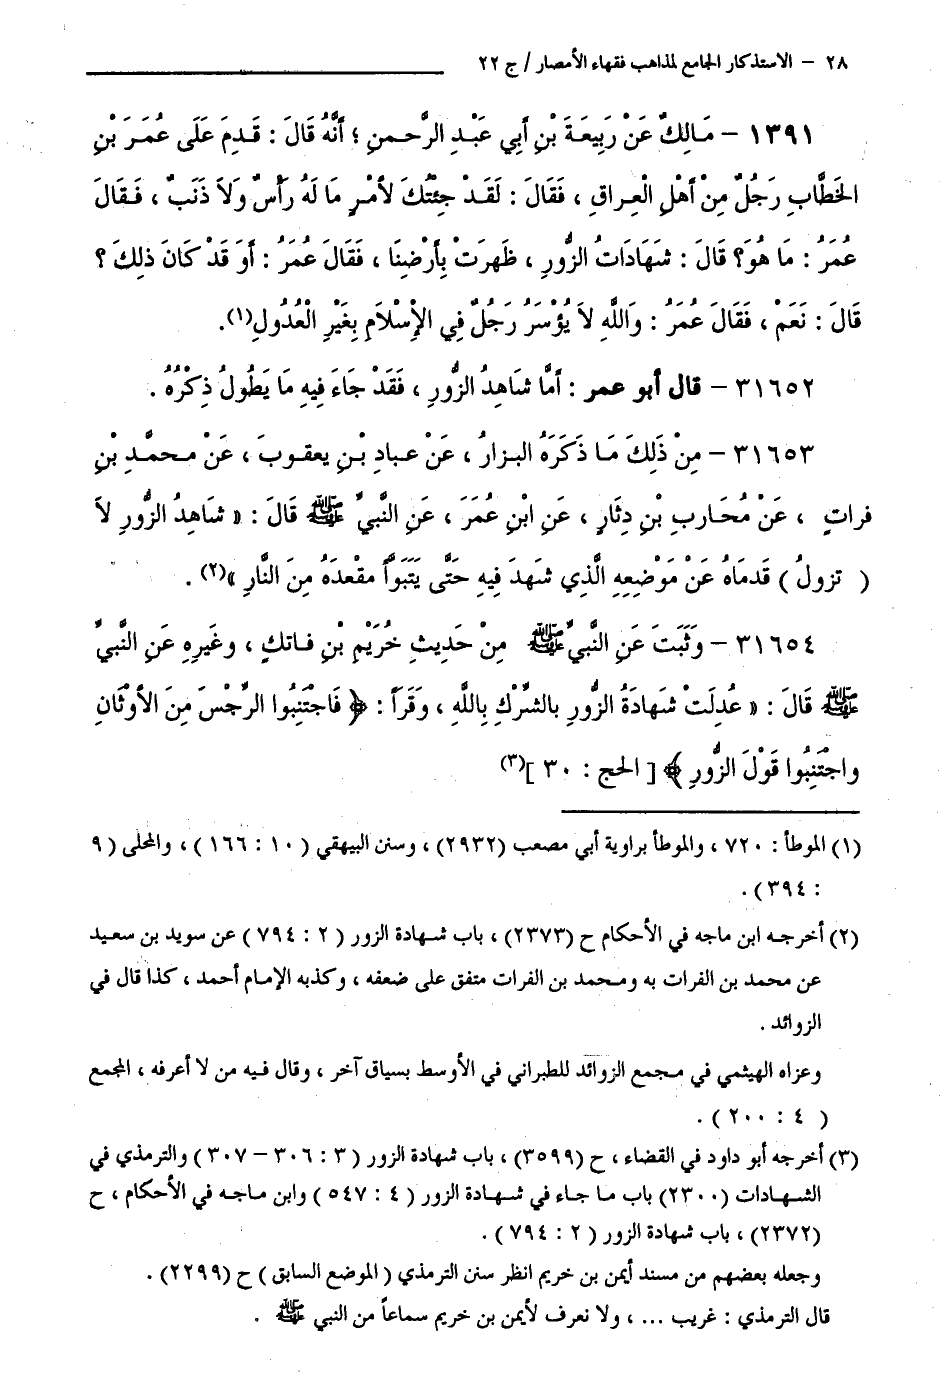 ٢٨ – الاستذكار الجامع لمذاهب فقهاء الأمصار / ج ٢٢
١٣٩١ – مَالِكٌ عَنْ رَبِيعَةَ بْنِ أَبِي عَبْدِ الرَّحمنِ ؛ أَنَّهُ قَالَ : قَدِمَ عَلَى عُمَرَ بْنِ
الخَطَّابِ رَجُلٌ مِنْ أَهْلِ الْعِراقِ ، فَقَالَ : لَقَدْ جِئْتُكَ لأَمْرٍ مَا لَهُ رَأْسٌ وَلاَ ذَنَبٌ ، فَقَالَ
عُمَرُ : مَا هُوَ؟ قَالَ : شَهَادَاتُ الزُّورِ ، ظَهرَتْ بِأَرْضِنَا ، فَقَالَ عُمَرُ : أَوَ قَدْ كَانَ ذلِكَ ؟
قَالَ : نَعَمْ ، فَقَالَ عُمَرُ : وَاللَّهِ لاَ يُؤْسَرُ رَجُلٌ فِي الإِسْلاَمِ بِغَيْرِ الْعُدُولِ(١).
٣١٦٥٢ – قال أبو عمر : أَمَّا شَاهِدُ الزُّورِ ، فَقَدْ جَاءَ فِيهِ مَا يَطُولُ ذِكْرُهُ .
٣١٦٥٣ – مِنْ ذَلِكَ مَا ذَكَرَهُ البزارُ ، عَنْ عبادِ بْنِ يعقوبَ ، عَنْ محمَّدِ بْنِ
فراتٍ ، عَنْ مُحَاربِ بْنِ دِثَارٍ ، عَنِ ابْنِ عُمَرَ ، عَنِ النَّبِيِّ ﷺ قَالَ : « شَاهِدُ الزُّورِ لاَ
( تزولُ ) قَدمَاهُ عَنْ مَوْضِعِهِ الَّذِي شَهدَ فِيهِ حَتَّى يَتَبَوَّأَ مقْعدَهُ مِنَ النَّارِ »(٢) .
٣١٦٥٤ – وَثَبَتَ عَنِ النَّبِيِّ ﷺ مِنْ حَدِيثِ خُرَيْمِ بْنِ فاتكٍ ، وغَيرِهِ عَنِ النَّبِيِّ
ﷺ قَالَ : « عُدِلَتْ شَهَادَةُ الزُّورِ بالشِّرْكِ بِاللَّهِ ، وَقَرَأَ : ﴿ فَاجْتَنِبُوا الرِّجْسَ مِنَ الأَوْثَانِ
واجْتَنِبُوا قَوْلَ الزُّورِ ﴾ [ الحج : ٣٠ ](٣)
(١) الموطأ : ٧٢٠ ، والموطأ براوية أبي مصعب (٢٩٣٢) ، وسنن البيهقي ( ١٠ : ١٦٦ ) ، والمحلى ( ٩
: ٣٩٤) .
(٢) أخرجه ابن ماجه في الأحكام ح (٢٣٧٣) ، باب شهادة الزور ( ٢ : ٧٩٤ ) عن سويد بن سعيد
عن محمد بن الفرات به ومحمد بن الفرات متفق على ضعفه ، وكذبه الإمام أحمد ، كذا قال في
الزوائد .
وعزاه الهيثمي في مجمع الزوائد للطبراني في الأوسط بسياق آخر ، وقال فيه من لا أعرفه ، المجمع
( ٤ : ٢٠٠ ) .
(٣) أخرجه أبو داود في القضاء ، ح (٣٥٩٩) ، باب شهادة الزور ( ٣ : ٣٠٦ – ٣٠٧ ) والترمذي في
الشهادات (٢٣٠٠) باب ما جاء في شهادة الزور ( ٤ : ٥٤٧ ) وابن ماجه في الأحكام ، ح
(٢٣٧٢) ، باب شهادة الزور ( ٢ : ٧٩٤ ) .
وجعله بعضهم من مسند أيمن بن خريم انظر سنن الترمذي ( الموضع السابق ) ح (٢٢٩٩) .
قال الترمذي : غريب ... ، ولا نعرف لأيمن بن خريم سماعاً من النبي ﷺ .